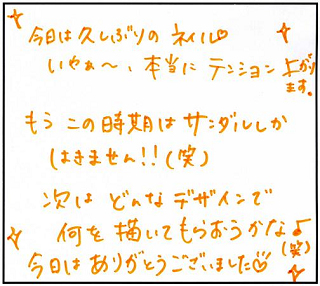 今日は久しぶりのネイル♡
いやぁ〜、本当にテンション上がります。
もうこの時期はサンダルしか
はきません!!(笑)
次はどんなデザインで
何を描いてもらおうかな♪(笑)
今日はありがとうございました♡